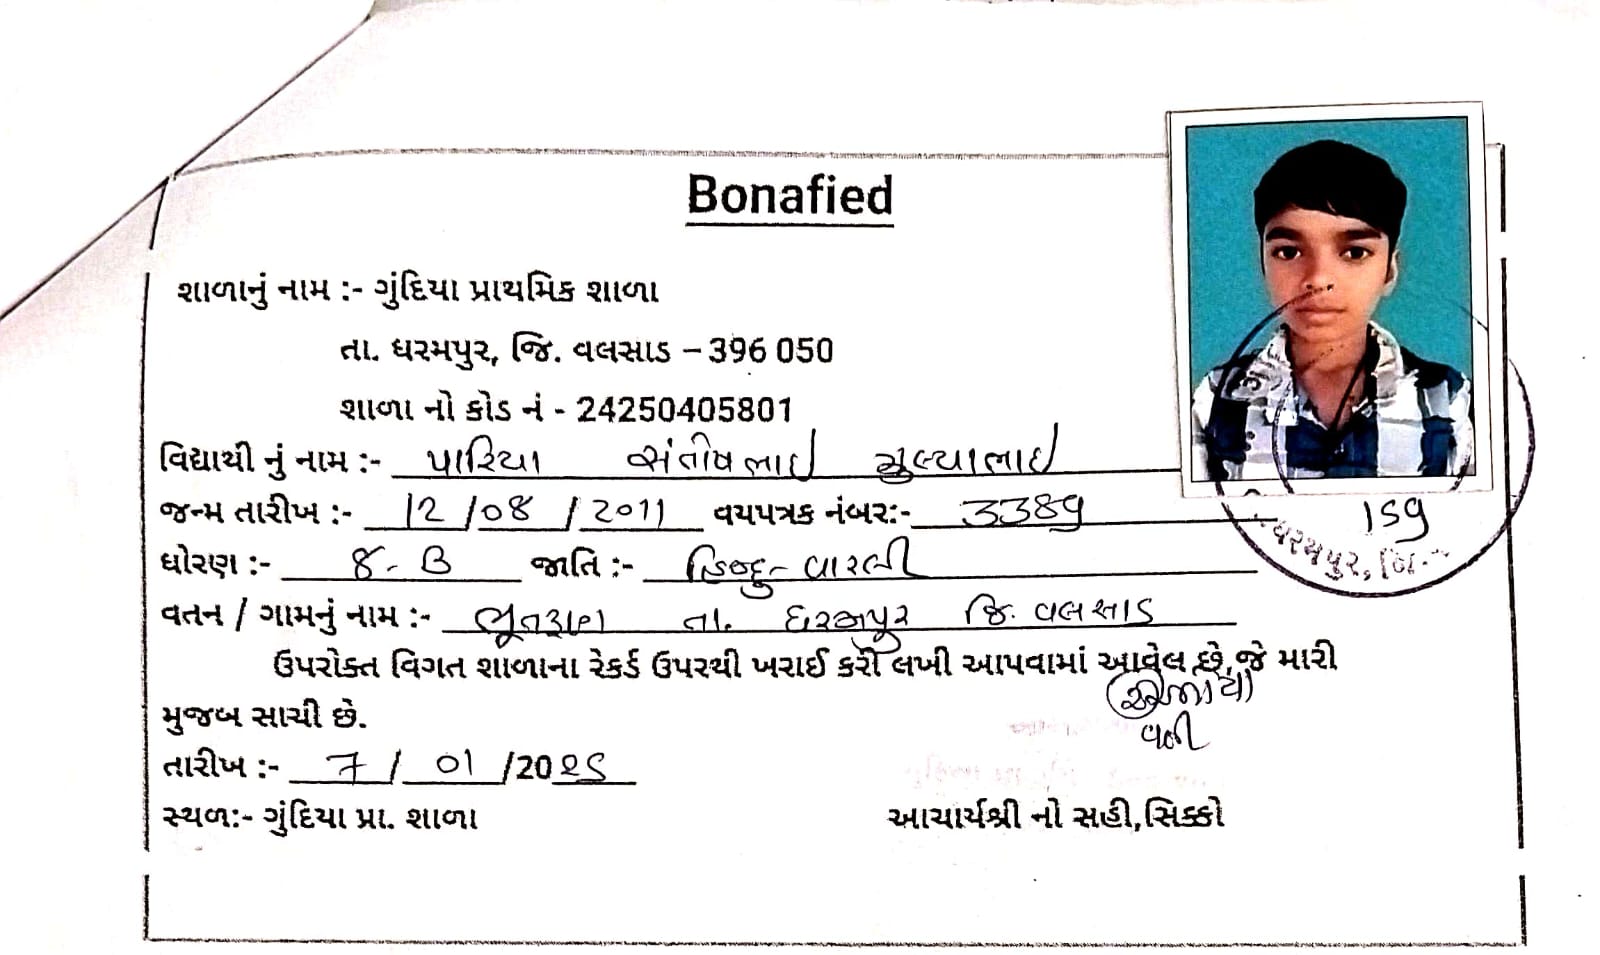 Bonafied
શાળાનું નામ :- ગુંદિયા પ્રાથમિક શાળા
તા. ધરમપુર, જિ. વલસાડ – 396 050
શાળા નો કોડ નં - 24250405801
વિદ્યાથી નું નામ :- પારિયા સંતોષભાઇ મુલ્યાભાઇ
જન્મ તારીખ :- 12 / 08 / 2011 વયપત્રક નંબર:- 3389
ધોરણ :- 8 - B જાતિ :- હિન્દુ - વારલી
વતન / ગામનું નામ :- ભૂતરૂણ તા. ધરમપુર જિ. વલસાડ
ઉપરોક્ત વિગત શાળાના રેકર્ડ ઉપરથી ખરાઈ કરી લખી આપવામાં આવેલ છે,જે મારી
મુજબ સાચી છે.
તારીખ :- 7 / 01 /2025
સ્થળ:- ગુંદિયા પ્રા. શાળા
આચાર્યશ્રી નો સહી,સિક્કો
વતી
ધરમપુર, જિ.